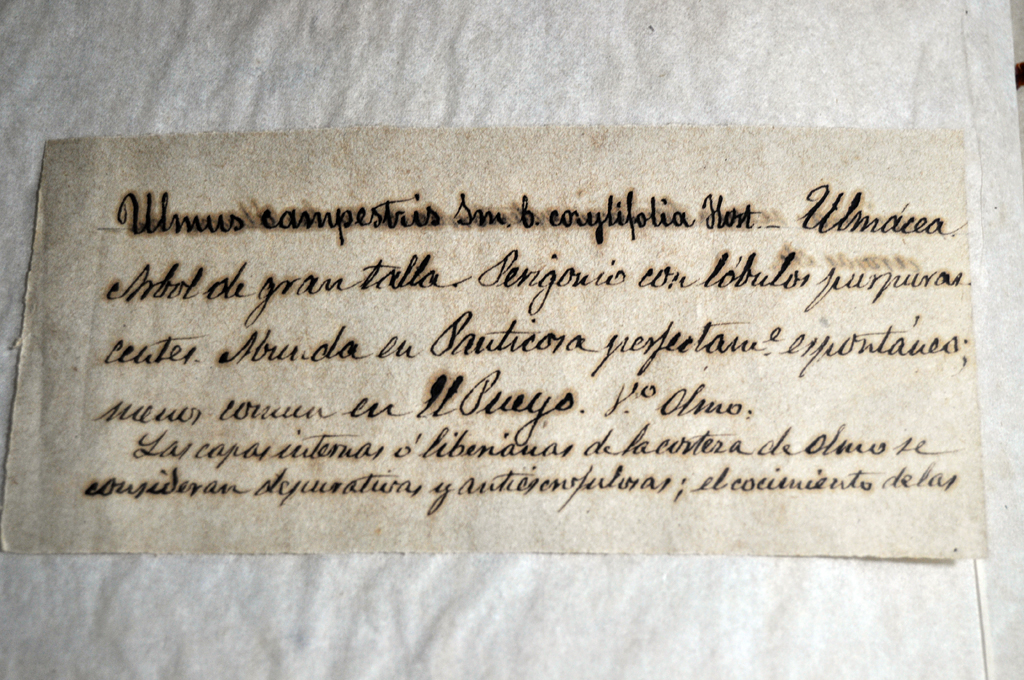 Ulmus campestris Sm. b. corylifolia Host. - Ulmácea.
Arbol de gran talla. Perigonio con lóbulos purpuras-
centes. Abunda en Panticosa perfectamᵉ. espontáneo;
menos comun en El Pueyo. V.º Olmo.
Las capas internas ó liberianas de la corteza de olmo se
consideran depurativas y antiescrofulosas; el cocimiento de las